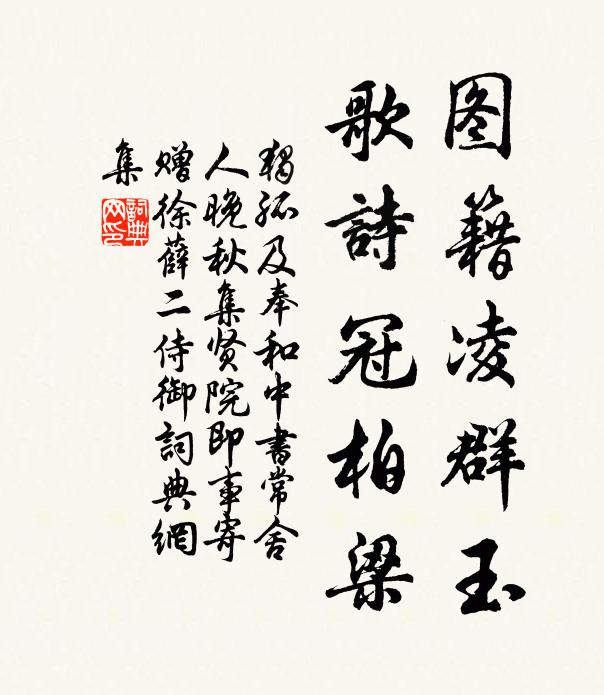 图籍凌群玉
歌詩冠柏梁
獨孤及奉和中書常舍
人晚秋集贤院即事寄
贈徐薛二侍御詞典網
集
詞典网印